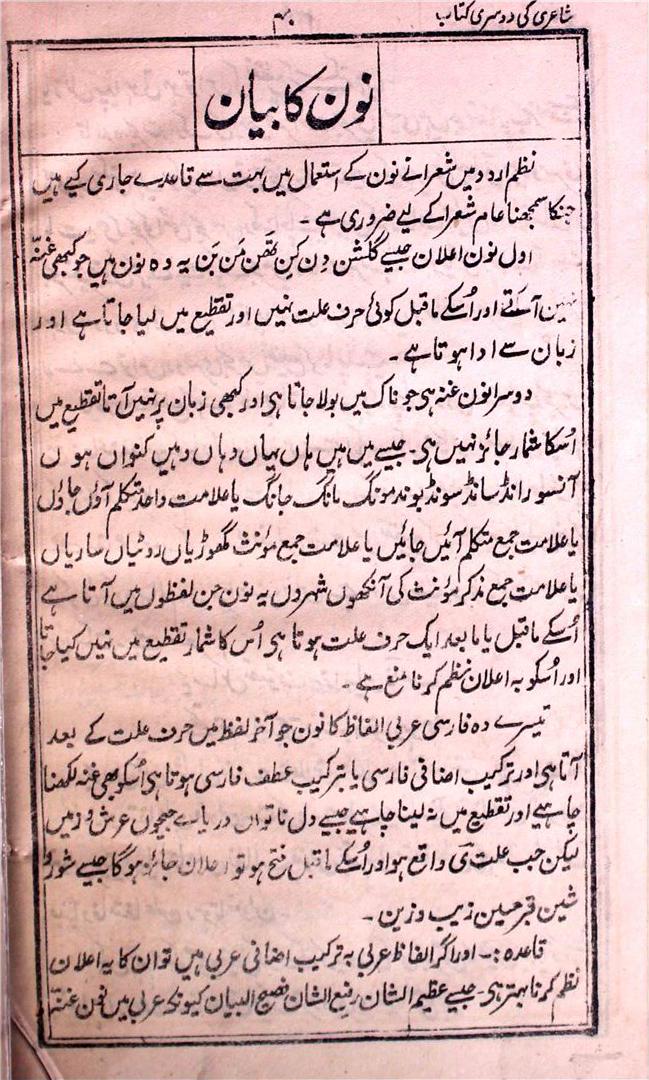 شاعری کی دوسری کتاب
۴۰
نون کا بیان
نظم اردو میں شعرا نے نون کے استعمال میں بہت سے قاعدے جاری کیے ہیں
جنکا سمجھنا عام شعرا کے لیے ضروری ہے ۔
اول نون اعلان جیسے گلشن دِن کِن تھَن مَن بَن یہ وہ نون ہیں جو کبھی غنّہ
نہیں آسکتے اور اُسکے ماقبل کوئی حرف علت نہیں اور تقطیع میں لیا جاتا ہے اور
زبان سے ادا ہوتا ہے ۔
دوسرا نون غنہ ہی جو ناک میں بولا جاتا ہی اور کبھی زبان پر نہیں آتا تقطیع میں
اُسکا شمار جائز نہیں ہی ۔ جیسے میں ہیں ہاں یہاں وہاں وہیں کنواں ہوں
آنسو رانڈ سانڈ سونڈ بوند مونگ مانگ جانگ یا علامت واحد متکلم آؤں جاؤں
یا علامت جمع متکلم آئیں جائیں یا علامت جمع مؤنث گھوڑیاں روٹیاں ساریاں
یا علامت جمع مذکر مؤنث کی آنکھوں شہروں یہ نون جن لفظوں میں آتا ہے
اُسکے ماقبل یا مابعد ایک حرف علت ہوتا ہی اُس کا شمار تقطیع میں نہیں کیا جاتا
اور اُسکو بہ اعلان نظم کرنا منع ہے ۔
تیسرے وہ فارسی عربی الفاظ کا نون جو آخر لفظ میں حرف علت کے بعد
آتا ہی اور ترکیب اضافی فارسی یا بترکیب عطف فارسی ہوتا ہی اُسکو بھی غنہ لکھنا
چاہیے اور تقطیع میں نہ لینا چاہیے جیسے دل ناتواں دریاے جیحوں عرش و زمیں
لیکن جب علت ی واقع ہو اور اُسکے ماقبل فتح ہو تو اعلان جائز ہوگا جیسے شور و
شین قبر حسین زیب و زین ۔
قاعدہ :۔ اور اگر الفاظ عربی بہ ترکیب اضافی عربی ہیں تو ان کا بہ اعلان
نظم کرنا بہتر ہی ۔ جیسے عظیم الشان رفیع الشان فصیح البیان کیونکہ عربی میں نون غنّہ